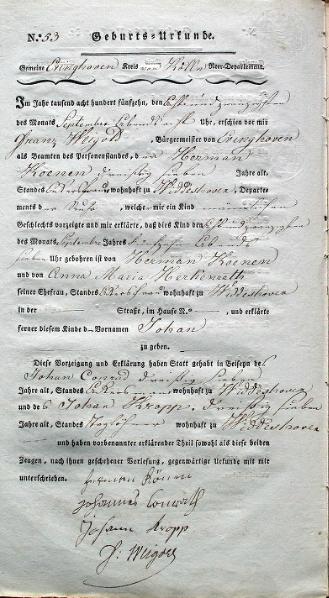 N.º 53 Geburts-Urkunde.
Gemeine Eringhoven Kreis von Kölln Roer-Departement.
Im Jahre tausend acht hundert fünfzehn, den
des Monats September Uhr, erschien vor mir
Franz Weigold, Bürgermeister von Eringhoven
als Beamten des Personenstandes, der Herman
Koenen dreyssig sieben Jahre alt,
Standes wohnhaft zu Widdeshoven, Departe-
ments der Ruhr, welcher mir ein Kind männlichen
Geschlechts vorzeigte und mir erklärte, daß dies Kind den
des Monats September Jahres
sieben Uhr gebohren ist von Herman Koenen
und von Anna Maria
seiner Ehefrau, Standes wohnhaft zu Widdeshoven
in der — Straße, im Hause N.º — und erklärte
ferner diesem Kinde die Vornamen Johan
zu geben.
Diese Vorzeigung und Erklärung haben Statt gehabt in Beiseyn des
Johan Conrad dreyssig
Jahre alt, Standes wohnhaft zu Widdeshoven
und des Johan Kropp, dreyssig sieben
Jahre alt, Standes Taglöhner wohnhaft zu Widdeshoven
und haben vorbenannter erklärender Theil sowohl als diese beiden
Zeugen, nach ihnen geschehener Vorlesung, gegenwärtige Urkunde mit mir
unterschrieben. herman Könen
Johannes Conrath
Johann Kropp